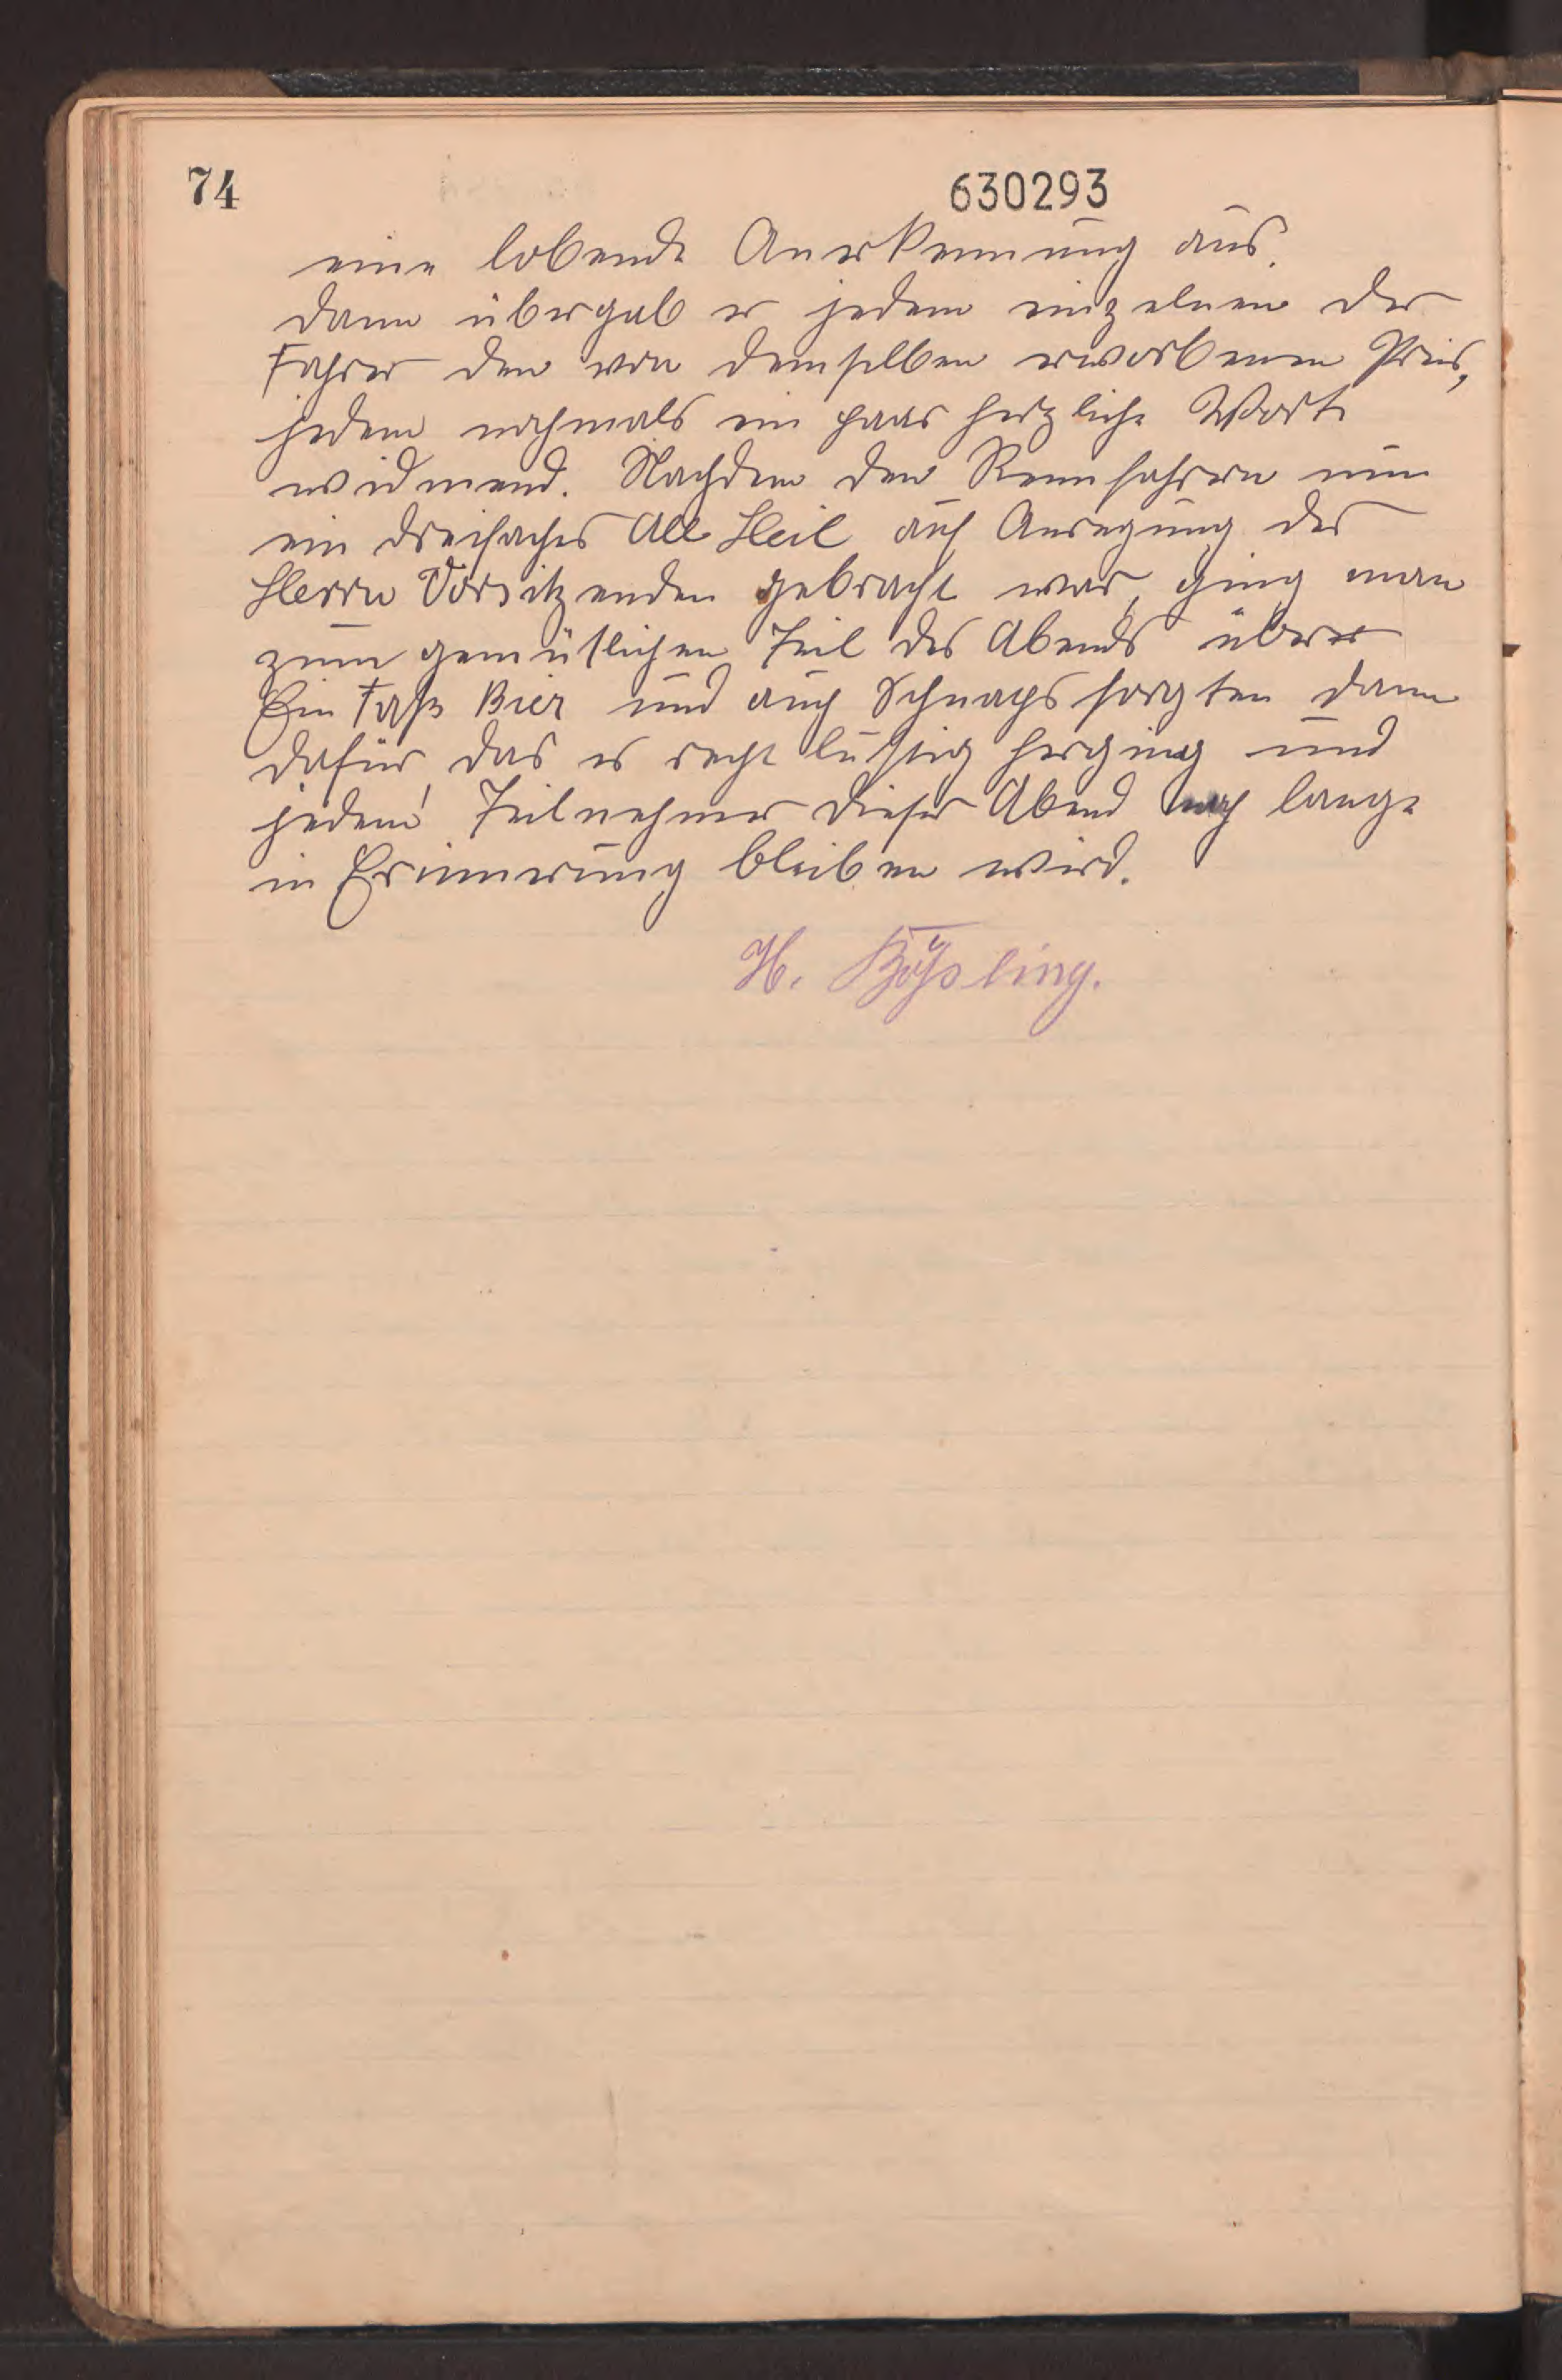 74
630293
eine lobende Anerkennung aus.
Dann übergab er jedem einzelnen der
Fahrer den von demselben erworbenen Preis,
jedem nochmals ein paar herzliche Worte
widmend. Nachdem den Rennfahrern nun
ein dreifaches All Heil auf Anregung des
Herrn Vorsitzenden gebracht war, ging man
zum gemütlichen Teil des Abends über
Ein Faß Bier und auch Schnaps sorgten dann
dafür, das es recht lustig herging und
jedem Teilnehmer dieser Abend noch lange
in Erinnerung bleiben wird.
H.